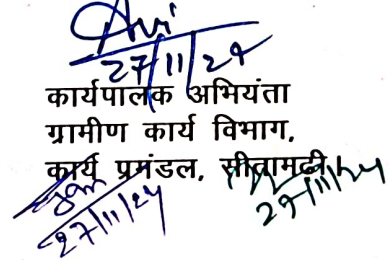 27/11/24
कार्यपालक अभियंता
ग्रामीण कार्य विभाग,
कार्य प्रमंडल, सीतामढ़ी।
27/11/24 27/11/24